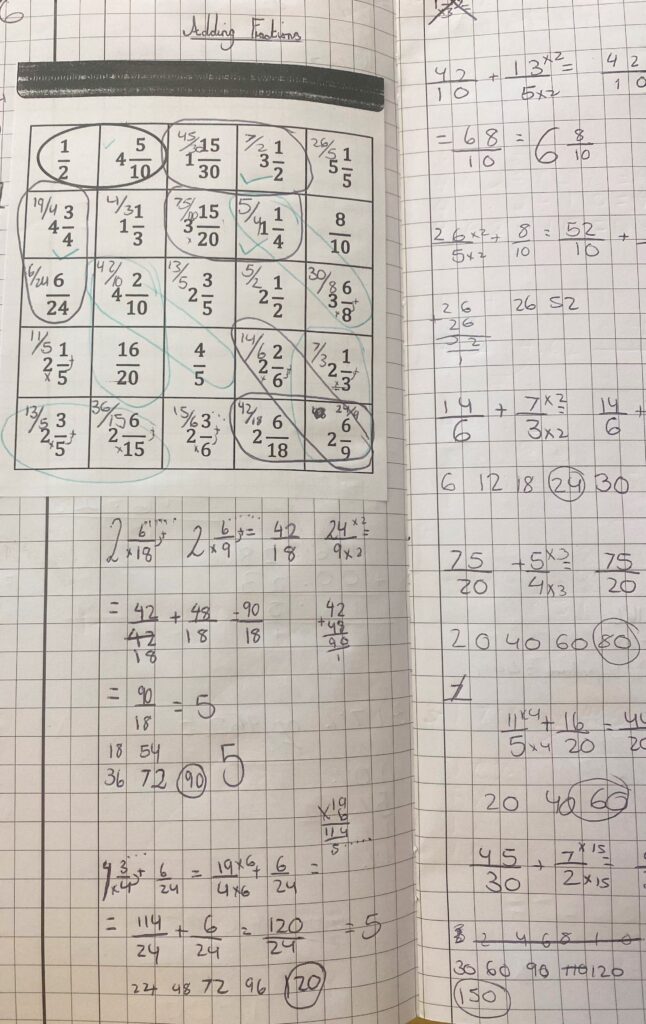 6
Adding Fractions
1/2 4 5/10 45/30 1 15/30 7/2 3 1/2 26/5 5 1/5
19/4 4 3/4 4/3 1 1/3 75/20 3 15/20 5/4 1 1/4 8/10
6/24 6/24 42/10 4 2/10 13/5 2 3/5 5/2 2 1/2 30/8 3 6/8
11/5 2 1/5 16/20 4/5 14/6 2 2/6 7/3 2 1/3
13/5 2 3/5 36/15 2 6/15 15/6 2 3/6 42/18 2 6/18 24/9 2 6/9
2 6/×18 + 2 6/×9 + = 42/18 24×2/9×2 =
= 42/18 + 48/18 = 90/18
42
+48
90
1
= 90/18 = 5
18 54
36 72 90 5
×19
6
114
5
4 3/×4 + 6/24 = 19×6/4×6 + 6/24 =
= 114/24 + 6/24 = 120/24 = 5
24 48 72 96 120
42/10 + 13×2/5×2 = 42/10
= 68/10 = 6 8/10
26×2/5×2 + 8/10 = 52/10 +
26
+26
52
1
26 52
14/6 + 7×2/3×2 = 14/6 +
6 12 18 24 30
75/20 + 5×5/4×5 = 75/20
20 40 60 80
11×4/5×4 + 16/20 = 44/20
20 40 60
45/30 + 7×15/2×15 =
2 4 6 8 10
30 60 90 120
150